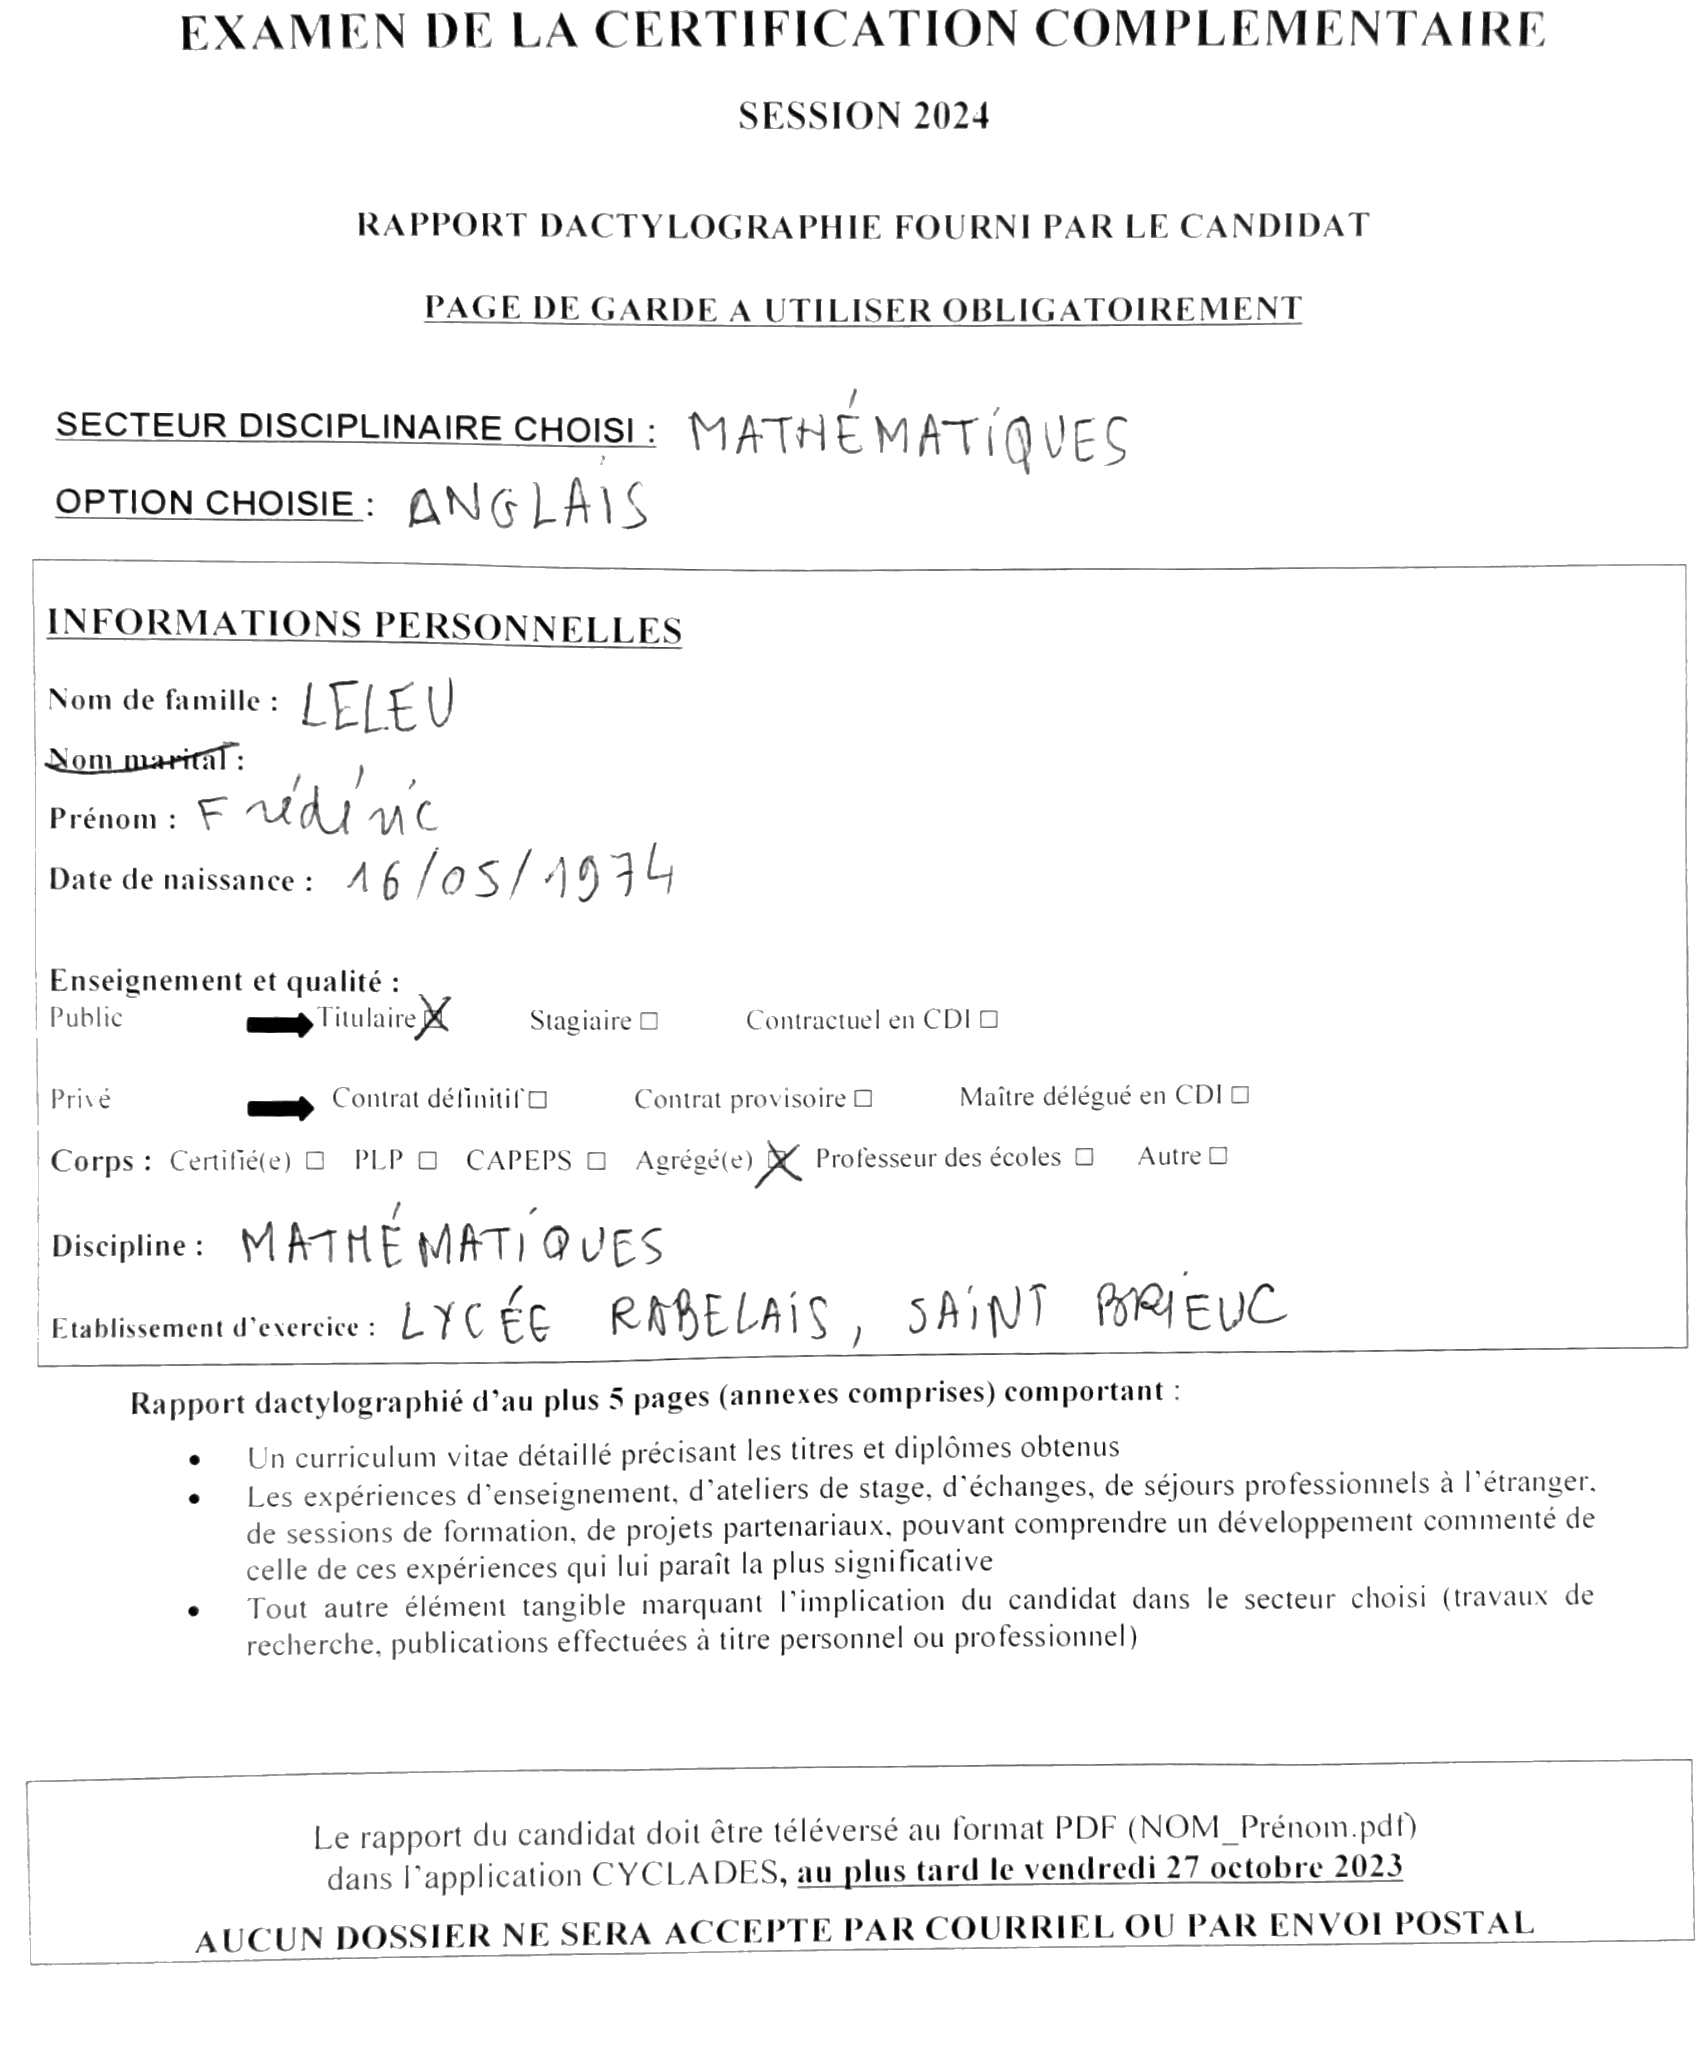 EXAMEN DE LA CERTIFICATION COMPLEMENTAIRE
SESSION 2024
RAPPORT DACTYLOGRAPHIE FOURNI PAR LE CANDIDAT
PAGE DE GARDE A UTILISER OBLIGATOIREMENT
SECTEUR DISCIPLINAIRE CHOISI : MATHÉMATIQUES
OPTION CHOISIE : ANGLAIS
INFORMATIONS PERSONNELLES
Nom de famille : LELEU
Nom marital :
Prénom : Frédéric
Date de naissance : 16/05/1974
Enseignement et qualité :
Public Titulaire ☒ Stagiaire □ Contractuel en CDI □
Privé Contrat définitif □ Contrat provisoire □ Maître délégué en CDI □
Corps : Certifié(e) □ PLP □ CAPEPS □ Agrégé(e) ☒ Professeur des écoles □ Autre □
Discipline : MATHÉMATIQUES
Etablissement d'exercice : LYCÉE RABELAIS, SAINT BRIEUC
Rapport dactylographié d'au plus 5 pages (annexes comprises) comportant :
• Un curriculum vitae détaillé précisant les titres et diplômes obtenus
• Les expériences d'enseignement, d'ateliers de stage, d'échanges, de séjours professionnels à l'étranger,
de sessions de formation, de projets partenariaux, pouvant comprendre un développement commenté de
celle de ces expériences qui lui paraît la plus significative
• Tout autre élément tangible marquant l'implication du candidat dans le secteur choisi (travaux de
recherche, publications effectuées à titre personnel ou professionnel)
Le rapport du candidat doit être téléversé au format PDF (NOM_Prénom.pdf)
dans l'application CYCLADES, au plus tard le vendredi 27 octobre 2023
AUCUN DOSSIER NE SERA ACCEPTE PAR COURRIEL OU PAR ENVOI POSTAL